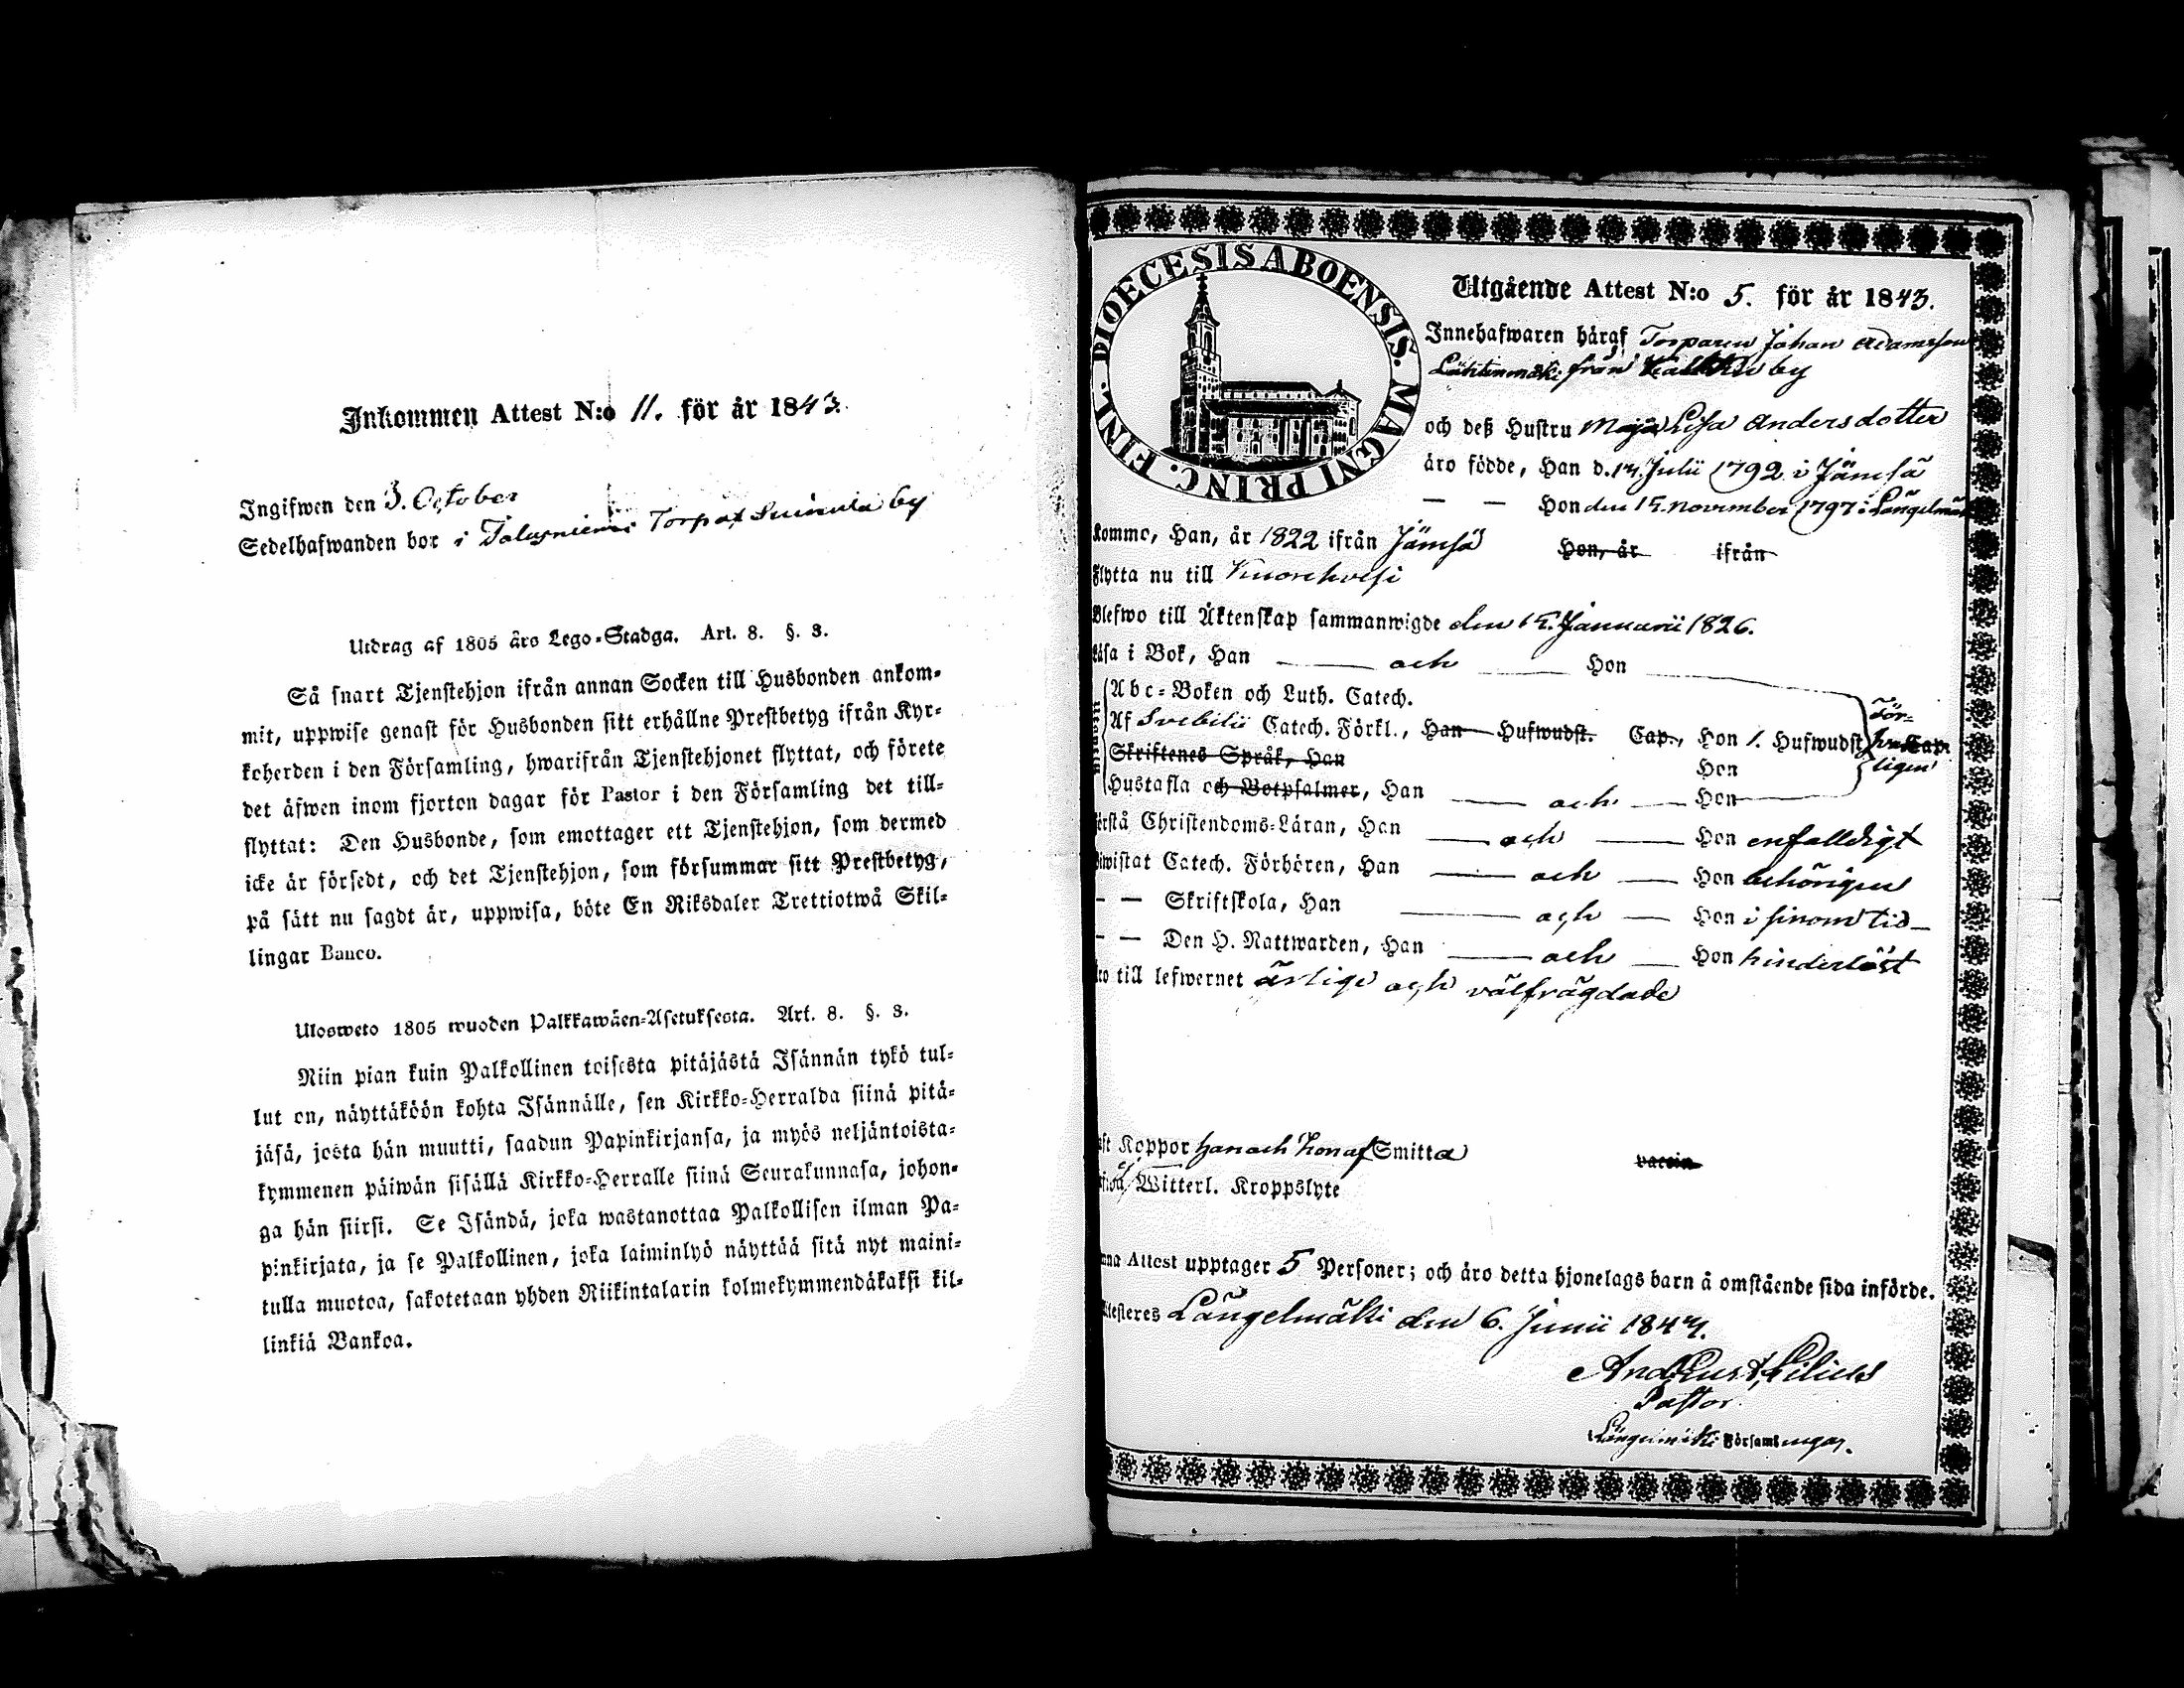 Inkommen Attest N:o 11. för år 1843.
Ingifwen den 3. October
Sedelhafwanden bor i Talusniemi Torp af Suinula by
Utdrag af 1805 års Lego-Stadga. Art. 8. §. 3.
Så snart Tjenstehjon ifrån annan Socken till Husbonden ankom-
mit, uppwise genast för Husbonden sitt erhållne Prestbetyg ifrån Kyr-
koherden i den Församling, hwarifrån Tjenstehjonet flyttat, och förete
det äfwen inom fjorton dagar för Pastor i den Församling det till-
flyttat: Den Husbonde, som emottager ett Tjenstehjon, som dermed
icke är försedt, och det Tjenstehjon, som försummar sitt Prestbetyg,
på sätt nu sagdt är, uppwisa, böte En Riksdaler Trettiotwå Skil-
lingar Banco.
Ulosweto 1805 wuoden Palkkawäen-Asetuksesta. Art. 8. §. 3.
Niin pian kuin Palkollinen toisesta pitäjästä Isännän tykö tul-
lut on, näyttäköön kohta Isännälle, sen Kirkko-Herralda siinä pitä-
jäsä, josta hän muutti, saadun Papinkirjansa, ja myös neljäntoista-
kymmenen päiwän sisällä Kirkko-Herralle siinä Seurakunnasa, johon-
ga hän siirsi. Se Isändä, joka wastanottaa Palkollisen ilman Pa-
pinkirjata, ja se Palkollinen, joka laiminlyö näyttää sitä nyt maini-
tulla muotoa, sakotetaan yhden Riikintalarin kolmekymmendäkaksi kil-
linkiä Bankoa.
DIOECESIS ABOENSIS. MAGNI PRINC. FINL.
Utgående Attest N:o 5. för år 1843.
Innehafwaren häraf Torparen Johan Adamsson
Lähtenmäki från by
och deß Hustru Maja Lisa Andersdotter
äro födde, Han d. 14. Julii 1792 i Jämsä
— — Hon den 15. November 1797 i Längelmäki
komme, Han, år 1822 ifrån Jämsä Hon, år ifrån
Flytta nu till Kuorehvesi
Blefwo till Äktenskap sammanwigde den 15. Januarii 1826.
Läsa i Bok, Han — och — Hon
Abc-Boken och Luth. Catech.
Af Svebilii Catech. Förkl., Han Hufwudst. Cap., Hon 1. Hufwudst Cap. För-
Skriftenes Språk, Han Hon ligen
Hustafla och Botpsalmer, Han — och — Hon
Förstå Christendoms-Läran, Han — och — Hon enfaldigt
Biwistat Catech. Förhören, Han — och — Hon behörigen
— — Skriftskola, Han — och — Hon i sinom tid —
— — Den H. Nattwarden, Han — och — Hon hinderlöst
äro till lefwernet ärlige och välfrägdade
Koppor han och hon af Smitta vaccin
Witterl. Kroppslyte
Attest upptager 5 Personer; och äro detta hjonelags barn å omstående sida införde.
Attesteres Längelmäki den 6. Junii 1843.
Pastor
Längelmäki Församlingar.